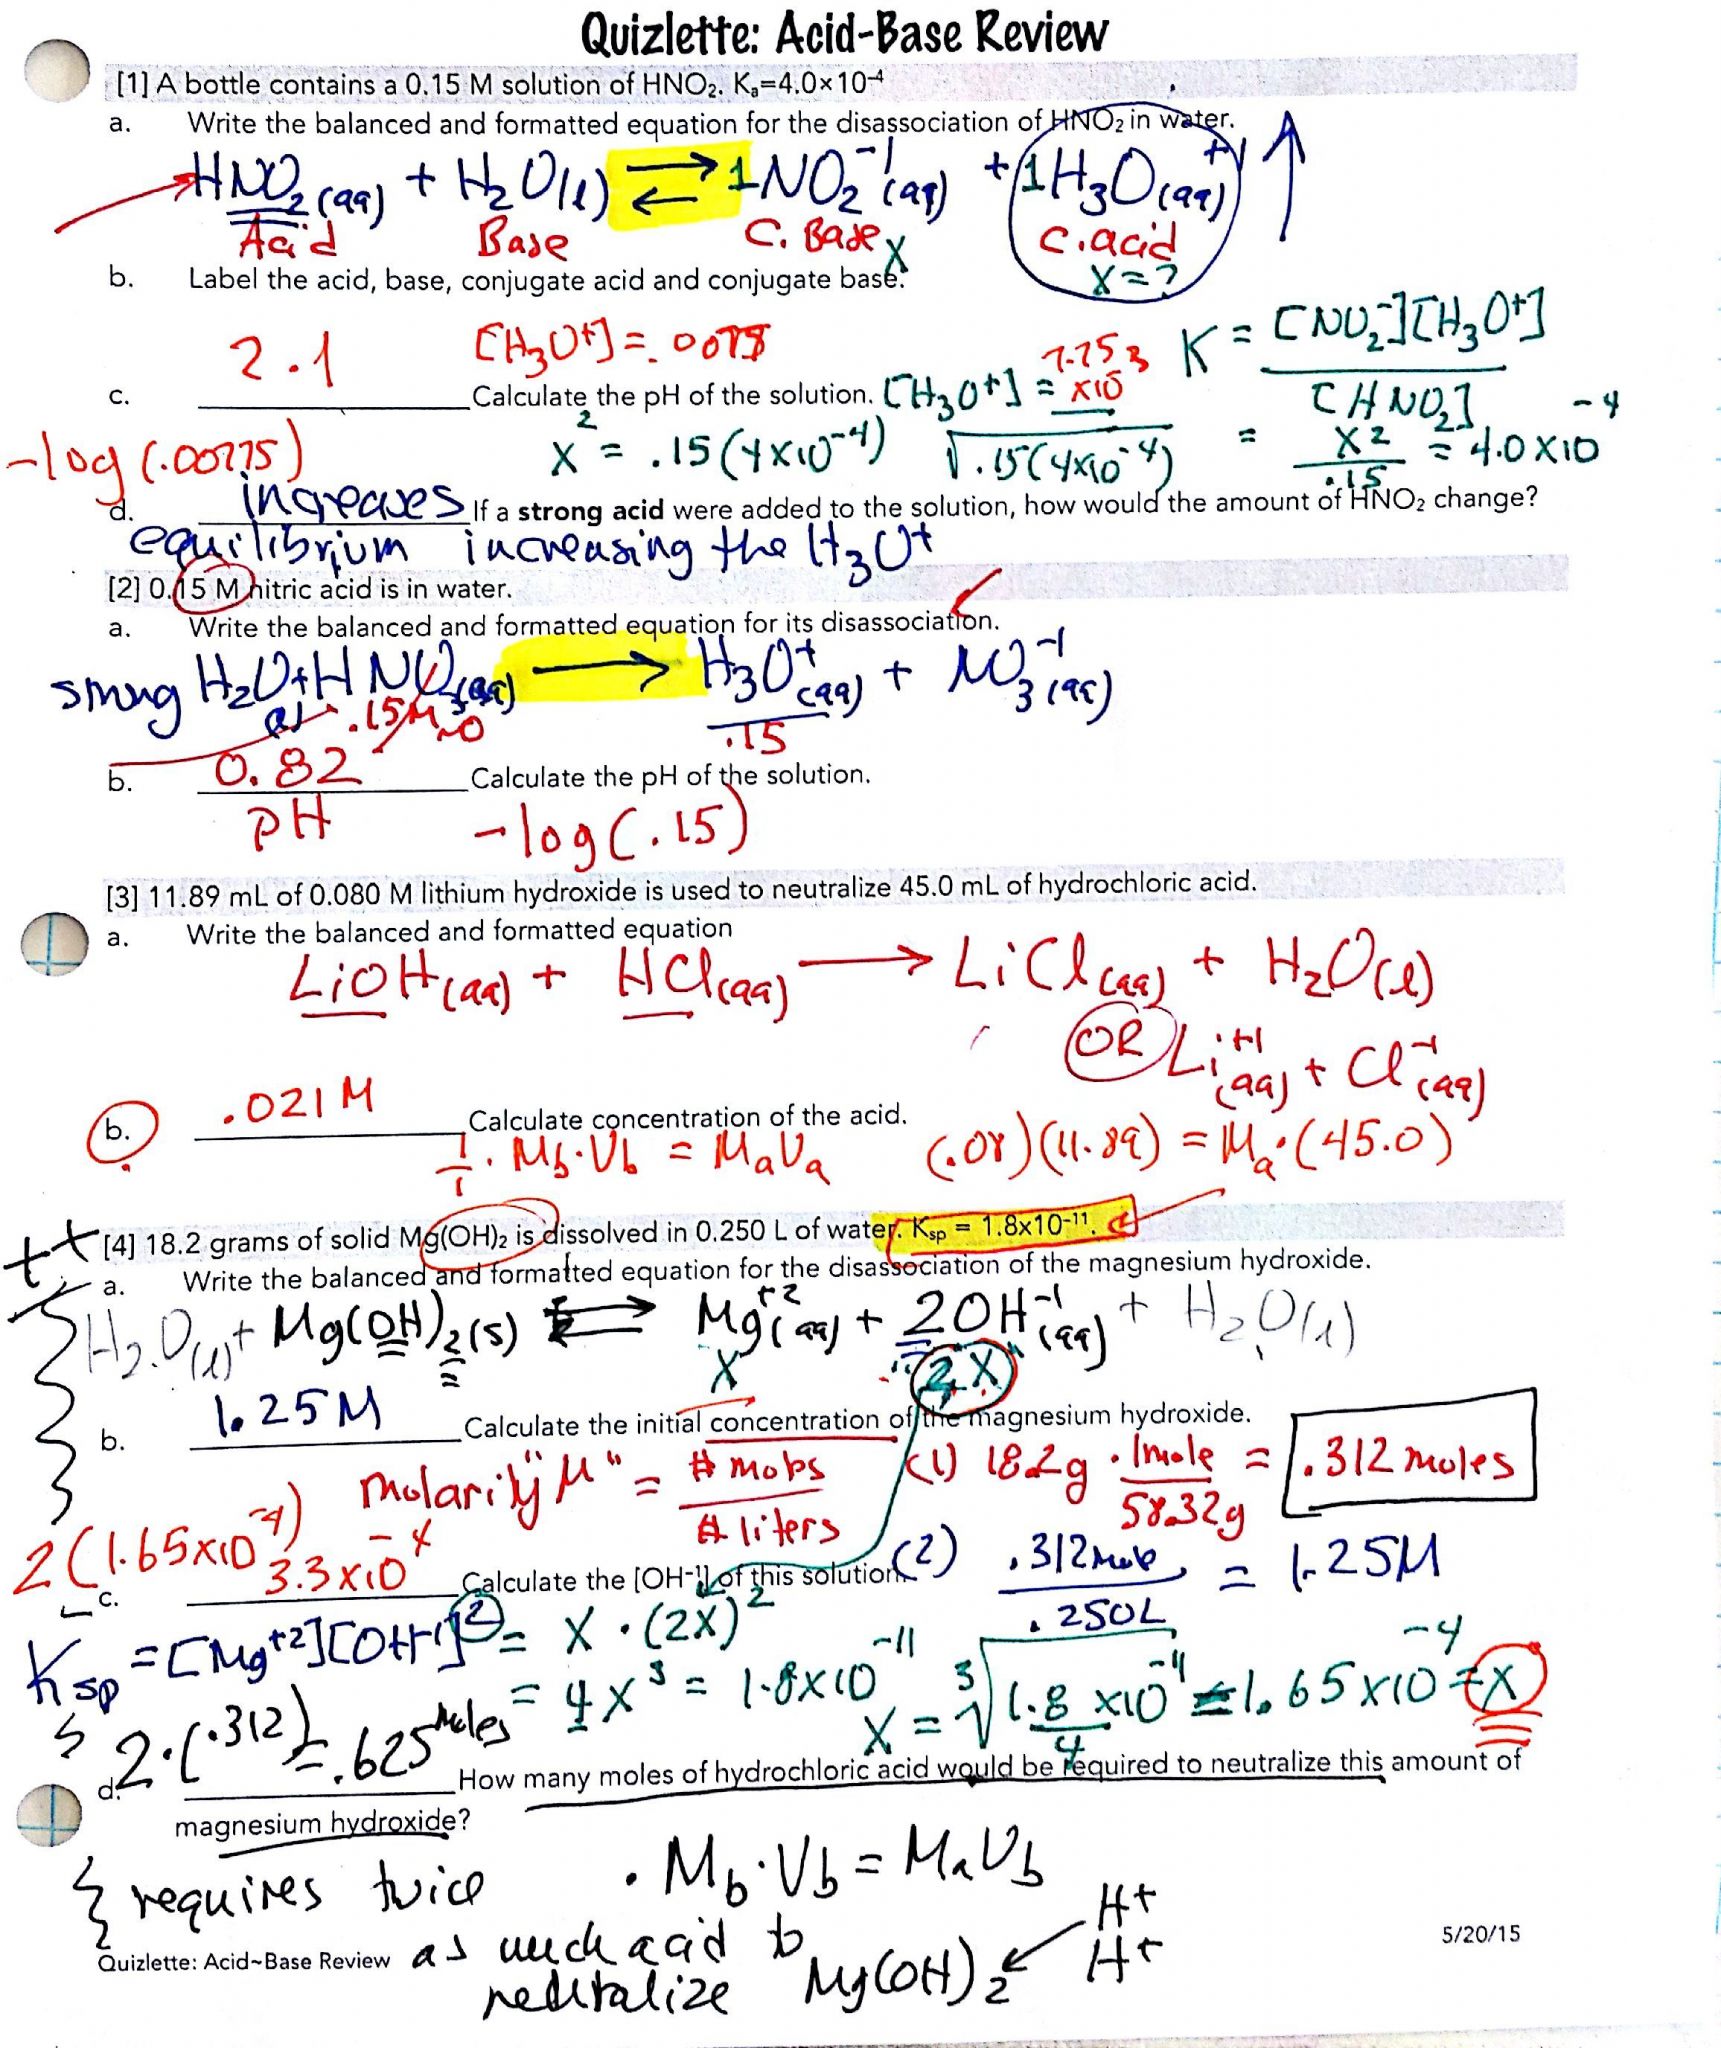 Quizlette: Acid-Base Review
[1] A bottle contains a 0.15 M solution of HNO₂. Kₐ=4.0×10⁻⁴
a. Write the balanced and formatted equation for the disassociation of HNO₂ in water.
HNO₂(aq) + H₂O(l) ⇄ 1NO₂⁻¹(aq) + 1H₃O⁺¹(aq) ↑
Acid Base C. Base C. acid
X X=?
b. Label the acid, base, conjugate acid and conjugate base.
K = [NO₂⁻][H₃O⁺]
[HNO₂]
2.1 [H₃O⁺] = .00775
c. Calculate the pH of the solution. [H₃O⁺] = 7.75 x10⁻³
-log(.00775) x² = .15(4x10⁻⁴) √.15(4x10⁻⁴) = x²/.15 = 4.0x10⁻⁴
d. increases If a strong acid were added to the solution, how would the amount of HNO₂ change?
equilibrium increasing the H₃O⁺
[2] 0.15 M nitric acid is in water.
a. Write the balanced and formatted equation for its disassociation.
strong H₂O + HNO₃(aq) → H₃O⁺(aq) + NO₃⁻¹(aq)
(l) .15M 0 .15
b. 0.82 Calculate the pH of the solution.
pH -log(.15)
[3] 11.89 mL of 0.080 M lithium hydroxide is used to neutralize 45.0 mL of hydrochloric acid.
a. Write the balanced and formatted equation
LiOH(aq) + HCl(aq) → LiCl(aq) + H₂O(l)
OR Li⁺¹(aq) + Cl⁻¹(aq)
b. .021 M Calculate concentration of the acid.
1/1 · Mb·Vb = MaVa (.08)(11.89) = Ma·(45.0)
++ [4] 18.2 grams of solid Mg(OH)₂ is dissolved in 0.250 L of water. Ksp = 1.8x10⁻¹¹.
a. Write the balanced and formatted equation for the disassociation of the magnesium hydroxide.
H₂O(l) + Mg(OH)₂(s) ⇄ Mg⁺²(aq) + 2OH⁻¹(aq) + H₂O(l)
X 2X
b. 1.25 M Calculate the initial concentration of the magnesium hydroxide.
Molarity "M" = # moles / # liters (1) 18.2g · 1mole / 58.32g = .312 moles
2(1.65x10⁻⁴)
c. 3.3x10⁻⁴ Calculate the [OH-¹] of this solution. (2) .312 mole / .250L = 1.25M
Ksp = [Mg⁺²][OH⁻¹]² = X·(2X)²
= 4X³ = 1.8x10⁻¹¹ X = ³√1.8x10⁻¹¹/4 = 1.65x10⁻⁴ = X
2·(.312) = .625 Moles
d. How many moles of hydrochloric acid would be required to neutralize this amount of
magnesium hydroxide?
· Mb·Vb = MaVb
requires twice
as much acid to
neutralize Mg(OH)₂ H⁺
H⁺
Quizlette: Acid~Base Review
5/20/15